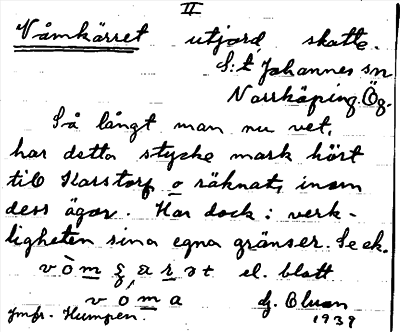 II
Våmkärret utjord, skatte.
S:t Johannes sn
Norrköping. Ög.
Så långt man nu vet,
har detta stycke mark hört
till Karstorp o räknats inom
dess ägor. Har dock i verk-
ligheten sina egna gränser. Se ek.
el. blott
våma
Jmfr. Kumpen. 1939